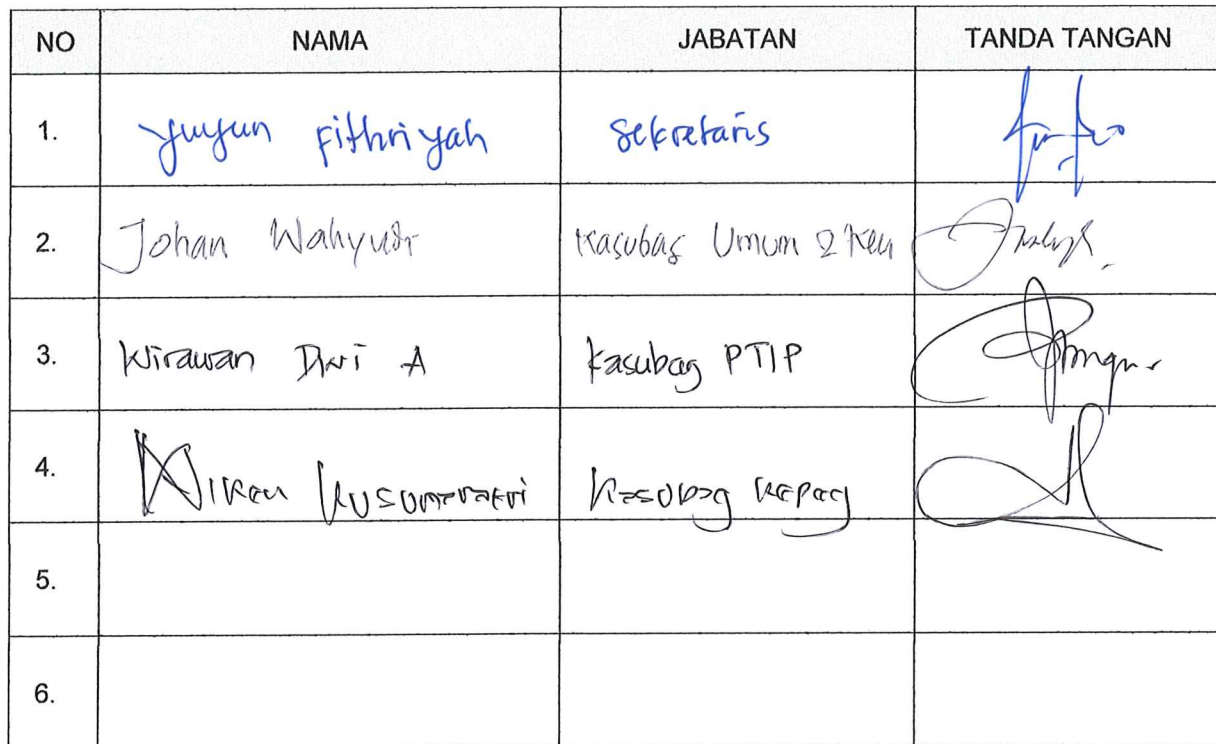 NO NAMA JABATAN TANDA TANGAN
1. Yuyun Fithriyah Sekretaris
2. Johan Wahyudi Kasubag Umum & Keu
3. Wirawan Dwi A Kasubag PTIP
4. Niken Kusumawatri Kasubag Kepeg
5.
6.